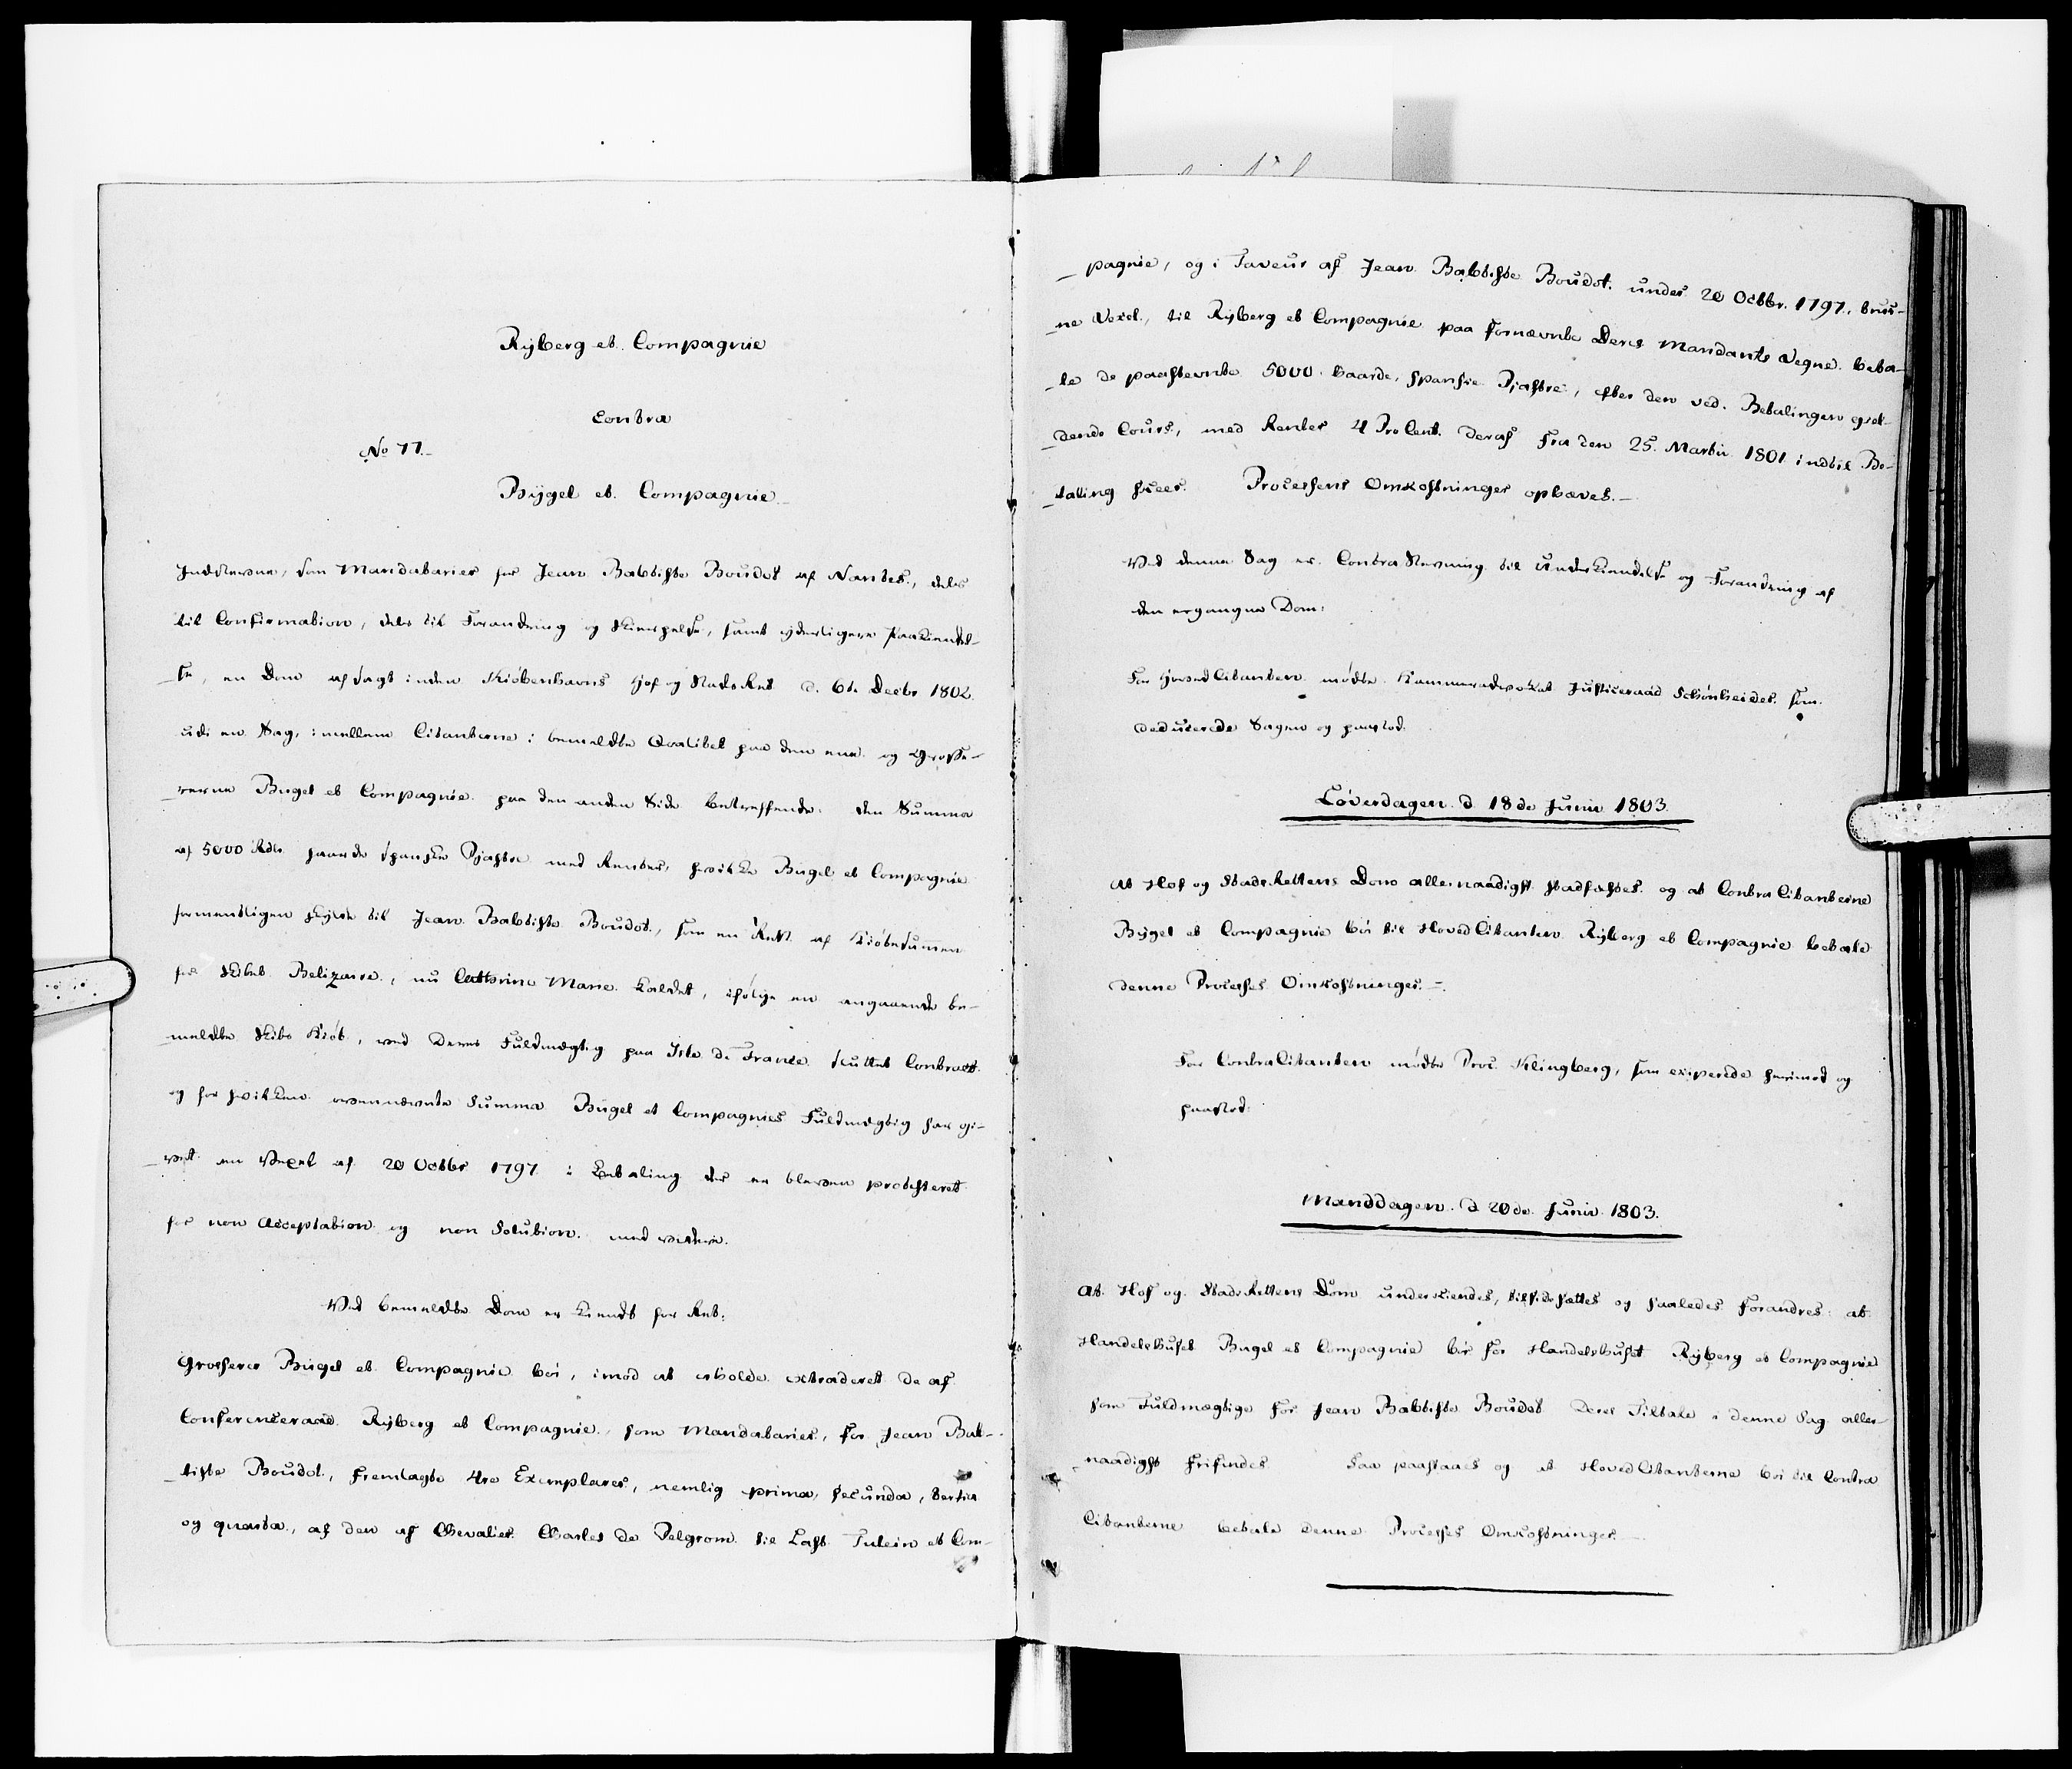 Ryberg et Compagnie
contra
No 77.
Bügel et Compagnie
Indstevne, som Mandatarier for Jean Babtiste Boudot af Nantes, dels
til Confirmation, dels til Forandring og Skierpelse, samt yderligere Paakiendel-
se, en Dom afsagt inden Kiøbenhavns Hof og Stads Ret d. 6te Decbr 1802.
udi en Sag, imellem Citanterne i bemeldte Qvalitet paa den ene og Grosse-
rerne Bügel et Compagnie paa den anden Side betreffende den Summa
af 5000 Rdlr haarde spanske Pjastre med Renter, hvilke Bügel et Compagnie
formentligen skylde til Jean Babtiste Boudot, som en Rest af Kiøbesummen
for Skibet Belizaire, nu Cathrine Marie kaldet, ifølge en angaaende be-
meldte Skibs Kiøb, ved Deres Fuldmægtig paa Isle de France sluttet Contract
og for hvilken ovennævnte Summa Bügel et Compagnies Fuldmægtig har gi-
vet en Vexel af 20 Octbr 1797 i Betaling der er bleven protesteret
for non Acceptation og non Solution. med videre.
Ved bemeldte Dom er kiendt for Ret:
Grosserer Bügel et Compagnie bør, imod at erholde extraderet de af
Conferenceraad Ryberg et Compagnie, som Mandatarier, for Jean Bab-
tiste Boudot, fremlagte 4re Exemplarer, nemlig prima, secunda, tertia
og quarta, af den af Chevalier Charles de Pelgrom til Last Tutein et Com-
pagnie, og i Faveur af Jean Babtiste Boudot under 20 Octbr. 1797. truk-
ne Vexel, til Ryberg et Compagnie paa fornævnte Deres Mandants Vegne beta-
le de paastevnte 5000 haarde, spanske Pjastre, efter den ved Betalingen giel-
dende Cours, med Renter 4 ProCent deraf fra den 25 Martii 1801 indtil Be-
taling skeer. Processens Omkostninger ophæves.
Ved denne Sag er Contra Stevning til Underkiendelse og Forandring af
den ergangne Dom:
For Hovedcitanten mødte Kammeradvokat Justiceraad Schønheider som
deducerede Sagen og paastod.
Løverdagen d 18de Junii 1803.
At Hof og Stads Rettens Dom allernaadigst stadfæstes og at Contra Citanterne
Bügel et Compagnie bør til Hoved Citanten Ryberg et Compagnie betale
denne Processes Omkostninger.
For ContraCitanten mødte Proc. Klingberg, som exciperede herimod og
paastod:
Manddagen d 20de Junii 1803.
At Hof og Stads Rettens Dom underkiendes, tilsidesættes og saaledes forandres: at
Handelshuset Bügel et Compagnie bør for Handelshuset Ryberg et Compagnie
som Fuldmægtige for Jean Babtiste Boudot Deres Tiltale i denne Sag aller-
naadigst frifindes Saa paastaaes og at HovedCitanterne bør til Contra
Citanterne betale denne Processes Omkostninger.